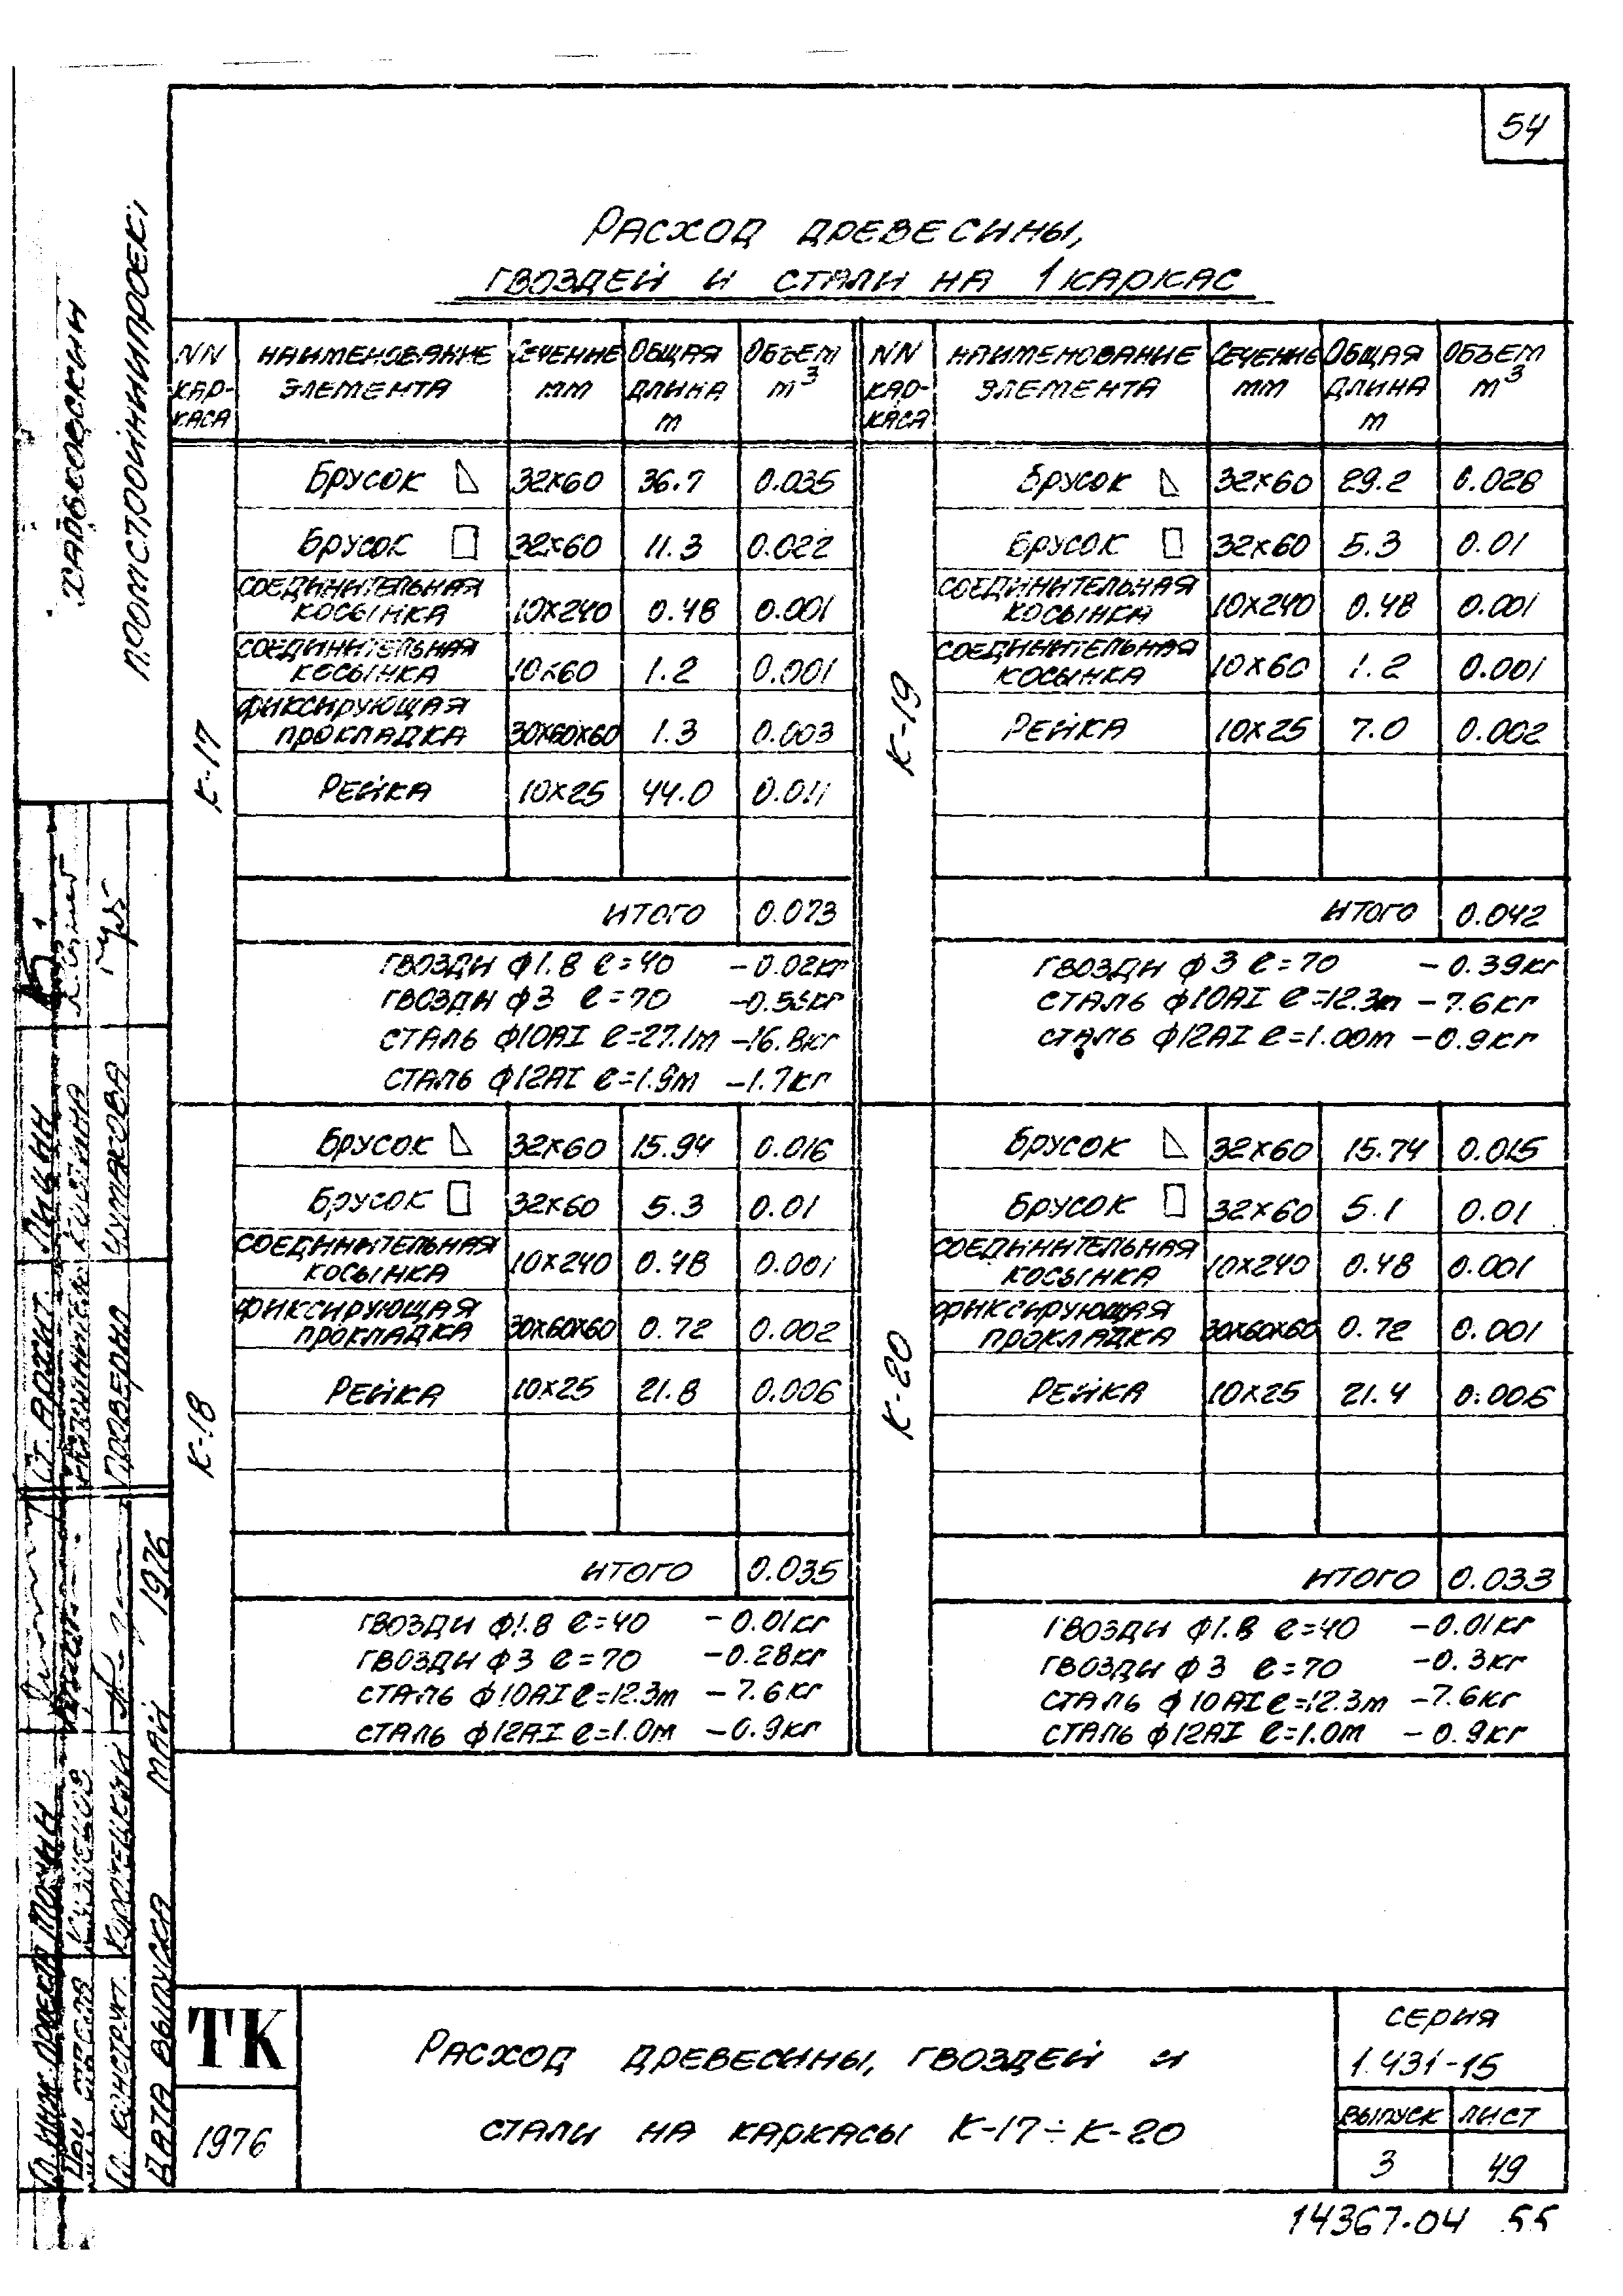 54
Расход древесины,
гвоздей и стали на 1 каркас
NN каркаса | Наименование элемента | Сечение мм | Общая длина м | Объем м³ | NN каркаса | Наименование элемента | Сечение мм | Общая длина м | Объем м³
К-17
Брусок 32х60 36.7 0.035
Брусок 32х60 11.3 0.022
Соединительная косынка 10х240 0.48 0.001
Соединительная косынка 10х60 1.2 0.001
Фиксирующая прокладка 30х60х60 1.3 0.003
Рейка 10х25 44.0 0.011
Итого 0.073
Гвозди ф1.8 ℓ=40 -0.02кг
Гвозди ф3 ℓ=70
Сталь ф10АI ℓ=27.1м -16.8кг
Сталь ф12АI ℓ=1.9м -1.7кг
К-19
Брусок 32х60 29.2 0.028
Брусок 32х60 5.3 0.01
Соединительная косынка 10х240 0.48 0.001
Соединительная косынка 10х60 1.2 0.001
Рейка 10х25 7.0 0.002
Итого 0.042
Гвозди ф3 ℓ=70 -0.39кг
Сталь ф10АI ℓ=12.3м -7.6кг
Сталь ф12АI ℓ=1.00м -0.9кг
К-18
Брусок 32х60 15.94 0.016
Брусок 32х60 5.3 0.01
Соединительная косынка 10х240 0.48 0.001
Фиксирующая прокладка 30х60х60 0.72 0.002
Рейка 10х25 21.8 0.006
Итого 0.035
Гвозди ф1.8 ℓ=40 -0.01кг
Гвозди ф3 ℓ=70 -0.28кг
Сталь ф10АI ℓ=12.3м -7.6кг
Сталь ф12АI ℓ=1.0м -0.9кг
К-20
Брусок 32х60 15.74 0.015
Брусок 32х60 5.1 0.01
Соединительная косынка 10х240 0.48 0.001
Фиксирующая прокладка 30х60х60 0.72 0.001
Рейка 10х25 21.4 0.006
Итого 0.033
Гвозди ф1.8 ℓ=40 -0.01кг
Гвозди ф3 ℓ=70 -0.3кг
Сталь ф10АI ℓ=12.3м -7.6кг
Сталь ф12АI ℓ=1.0м -0.9кг
Харьковский
Промстройниипроект
Ст. архит.
Проверил Чумакова
Гл. конструкт.
Дата выпуска май 1976
ТК
1976
Расход древесины, гвоздей и
стали на каркасы К-17÷К-20
Серия
1.431-15
Выпуск Лист
3 49
14367-04 55